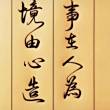 事在人為
境由心造